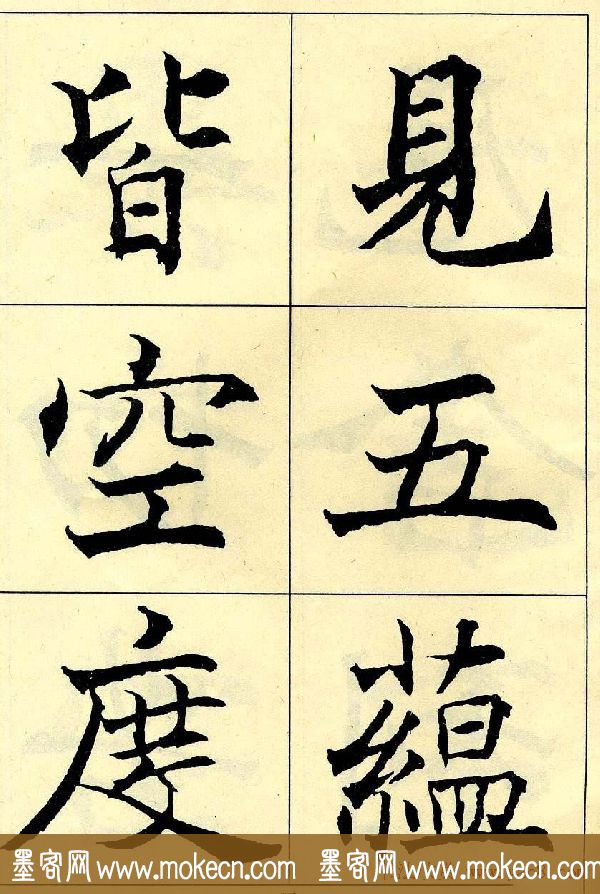 見五蘊
皆空度
墨客网 www.mokecn.com 墨客网 www.mokecn.com